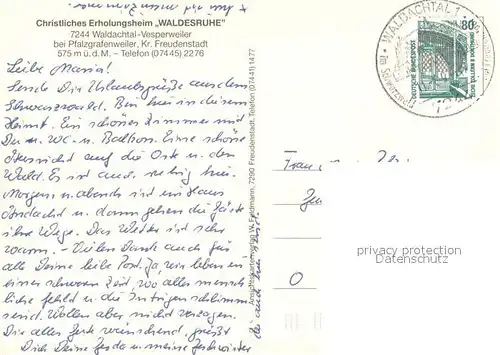 Christliches Erholungsheim „WALDESRUHE"
7244 Waldachtal-Vesperweiler
bei Pfalzgrafenweiler, Kr. Freudenstadt
575 m ü.d.M. – Telefon (07445) 2276
Liebe Maria!
Sende Dir Urlaubsgrüße aus dem
Schwarzwald. Bin hier in diesem
Heimt. Ein schönes Zimmer mit
Du u. WC. u. Balkon. Eine schöne
auf die Orte u. den
Wald. Es ist auch ruhig hier.
Morgen u. abends sind im Haus
Andacht u. dann gehen die Gäste
ihre Wege. Das Wetter ist sehr
warm. – Vielen Dank auch für
alle Deine liebe Post. Ja, wir leben in
einer schweren Zeit, wo alles mensch
liche fehlt u. die Intrigen schlimm
sind. Wollen aber nicht verzagen.
Dir alles Gute wünschend, grüßt
Dich Deine u. meine
Ansichtskartenverlag W. Feldmann, 7290 Freudenstadt, Telefon (07441) 1477
WALDACHTAL 1
80
DEUTSCHE BUNDESPOST
Frau
privacy protection
Datenschutz